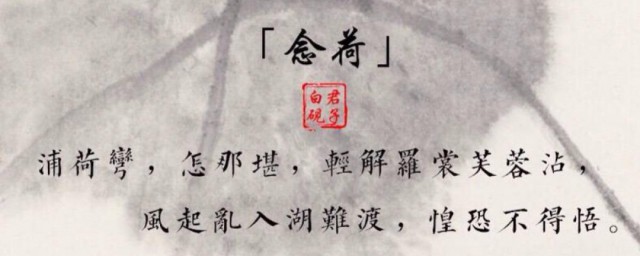 「念荷」
君子
白硯
浦荷彎，怎那堪，輕解羅裳芙蓉沾，
風起亂入湖難渡，惶恐不得悟。